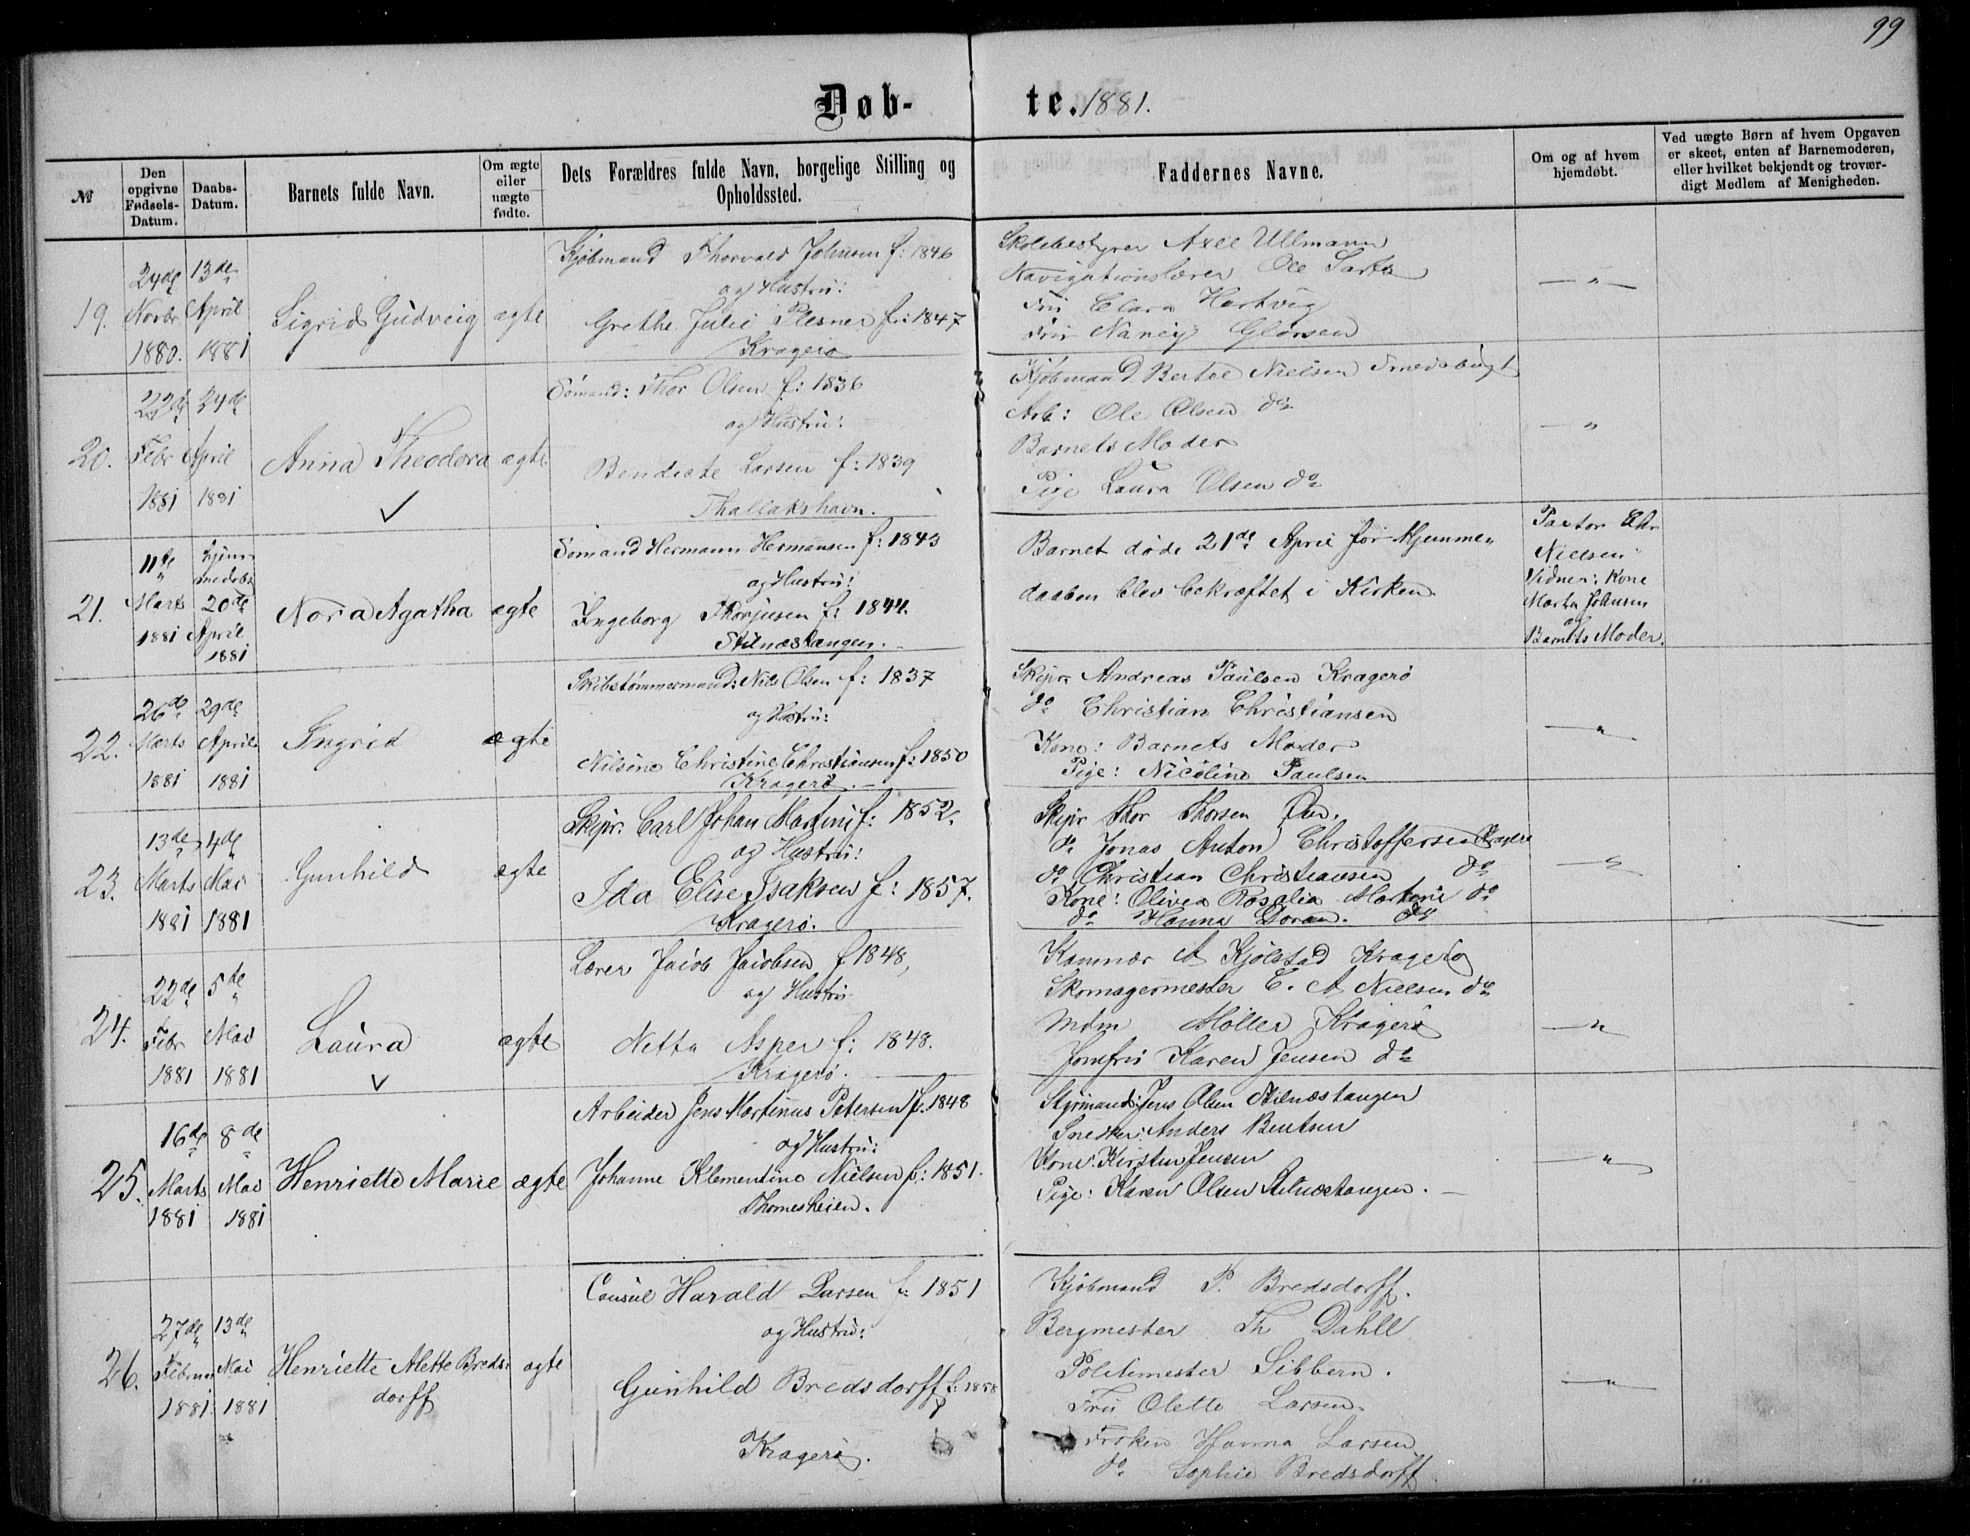 99
Døb- te. 1881.
№
Den opgivne Fødsels-Datum.
Daabs-Datum.
Barnets fulde Navn.
Om ægte eller uægte fødte.
Dets Forældres fulde Navn, borgelige Stilling og Opholdssted.
Faddernes Navne.
Om og af hvem hjemdøbt.
Ved uægte Børn af hvem Opgaven er skeet, enten af Barnemoderen, eller hvilket bekjendt og troværdigt Medlem af Menigheden.
19.
24de Novbr 1880.
13de April 1881
Sigrid Gudveig
ægte
Kjöbmand Thorvald Johnsen f: 1846
og Hustru:
Grethe Julie Plesner f: 1847
Kragerø
Skolebestyrer Axel Ullmann
Navigationslærer Ole
Fru Clara Hartvig
Fru Nancy
— " —
20.
22de Febr 1881
24de April 1881
Anna Theodora
✓
ægte
Sömand: Thor Olsen f: 1836
og Hustru:
Bendicte Larsen f: 1839
Thallakshavn.
Kjöbmand Bertel Nielsen Smedsbugt
Arb: Ole Olsen do
Barnets Moder
Pige Laura Olsen do
— " —
21.
11te Marts 1881
hjemmedøbt 20de April 1881
Nora Agatha
ægte
Sömand Hermann Hermansen f: 1843
og Hustru:
Ingeborg Thorjusen f: 1844.
Stilnæstangen.
Barnet døde 21de April før Hjemme-
daaben blev bekræftet i Kirken
Pastor Chr
Nielsen
Vidner: Kone
Martha Johnsen
og
Barnets Moder.
22.
26de Marts 1881
29de April 1881
Ingrid
ægte
Skibstømmermand: Nils Olsen f: 1837
og Hustru:
Nilsine Christine Christiansen f: 1850
Kragerø.
Skipr. Andreas Paulsen Kragerø
do Christian Christiansen
Kone: Barnets Moder
Pige: Nicoline Paulsen
— " —
23.
13de Marts 1881
4de Mai 1881
Gunhild
ægte
Skipr. Carl Johan Martini f: 1852.
og Hustru:
Ida Elise Isaksen f: 1857.
Kragerø.
Skipr Thor Thorsen
do Jonas Anton Christoffersen Kragerø
do Christian Christiansen do
Kone: Olivea Rosalia Martini do
do Hanna do
— " —
24.
22de Febr 1881
5de Mai 1881
Laura
✓
ægte
Lærer Jacob Jacobsen f 1848,
og Hustru
Netta Asper f: 1848.
Kragerø.
Kæmnær A Kjölstad Kragerø
Skomagermester C. A Nielsen do
Mdm Möller Kragerø
Jomfru Karen Jensen do
— " —
25.
16de Marts 1881
8de Mai 1881
Henriette Marie
ægte
Arbeider Jens Martinus Petersen f: 1848
og Hustru:
Johanne Klementine Nielsen f: 1851.
Thomesheien.
Styrmand: Jens Olsen Stilnæstangen
Snedker: Anders Bentsen
Kone: Kirsten Jensen
Pige: Karen Olsen Stilnæstangen.
— " —
26.
27de Februar 1881
13de Mai 1881
Henriette Alette Breds-
dorff
ægte
Consul Harald Larsen f: 1851
og Hustru:
Gunhild Bredsdorff f: 1858
Kragerø.
Kjöbmand P. Bredsdorff.
Bergmester Th Dahll
Politimester Sibbern.
Fru Olette Larsen
Frøken Hanna Larsen
do Sophie Bredsdorff.
— " —